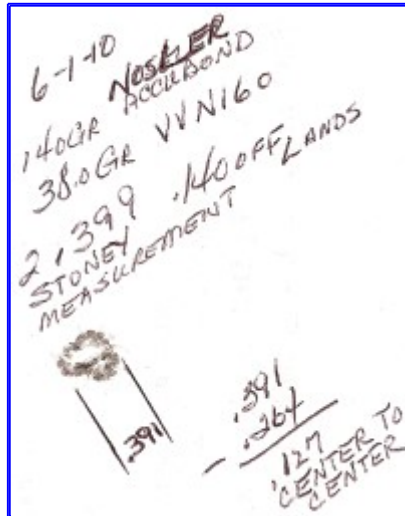 6-1-10
140GR NOSLER
ACCUBOND
38.0GR VVN160
2.399 .140 OFF LANDS
STONEY
MEASUREMENT
.391
.391
- .264
.127
CENTER TO
CENTER